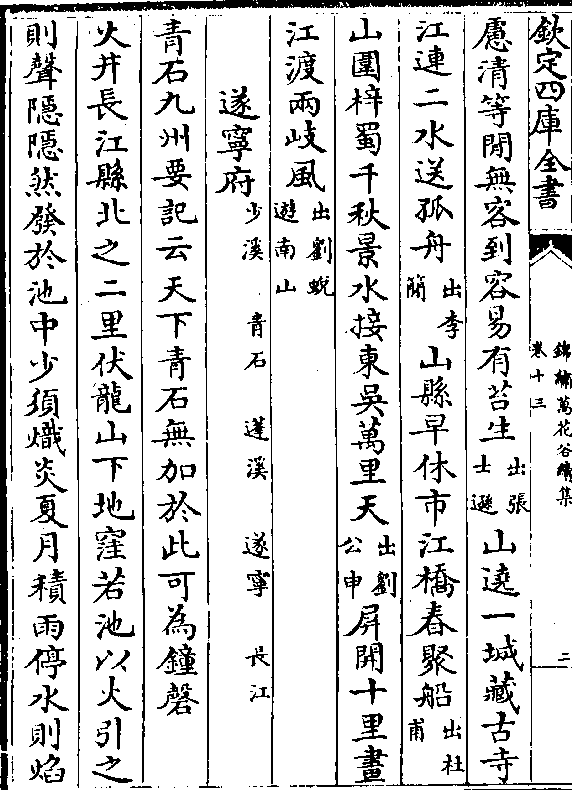 欽定四庫全書
錦繡萬花谷續集
卷十三
二
慮清等閒無客到容易有苔生出張士遜山遶一城藏古寺
江連二水送孤舟出李簡山縣早休市江橋春聚船出杜甫
山圍梓蜀千秋景水接東吳萬里天出劉公申屏開十里畫
江渡兩岐風出劉蛻遊南山
遂寧府少溪 青石 蓬溪 遂寧 長江
青石九州要記云天下青石無加於此可為鐘磬
火井長江縣北之二里伏龍山下地窪若池以火引之
則聲隱隱然發於池中少須熾炎夏月積雨停水則焰